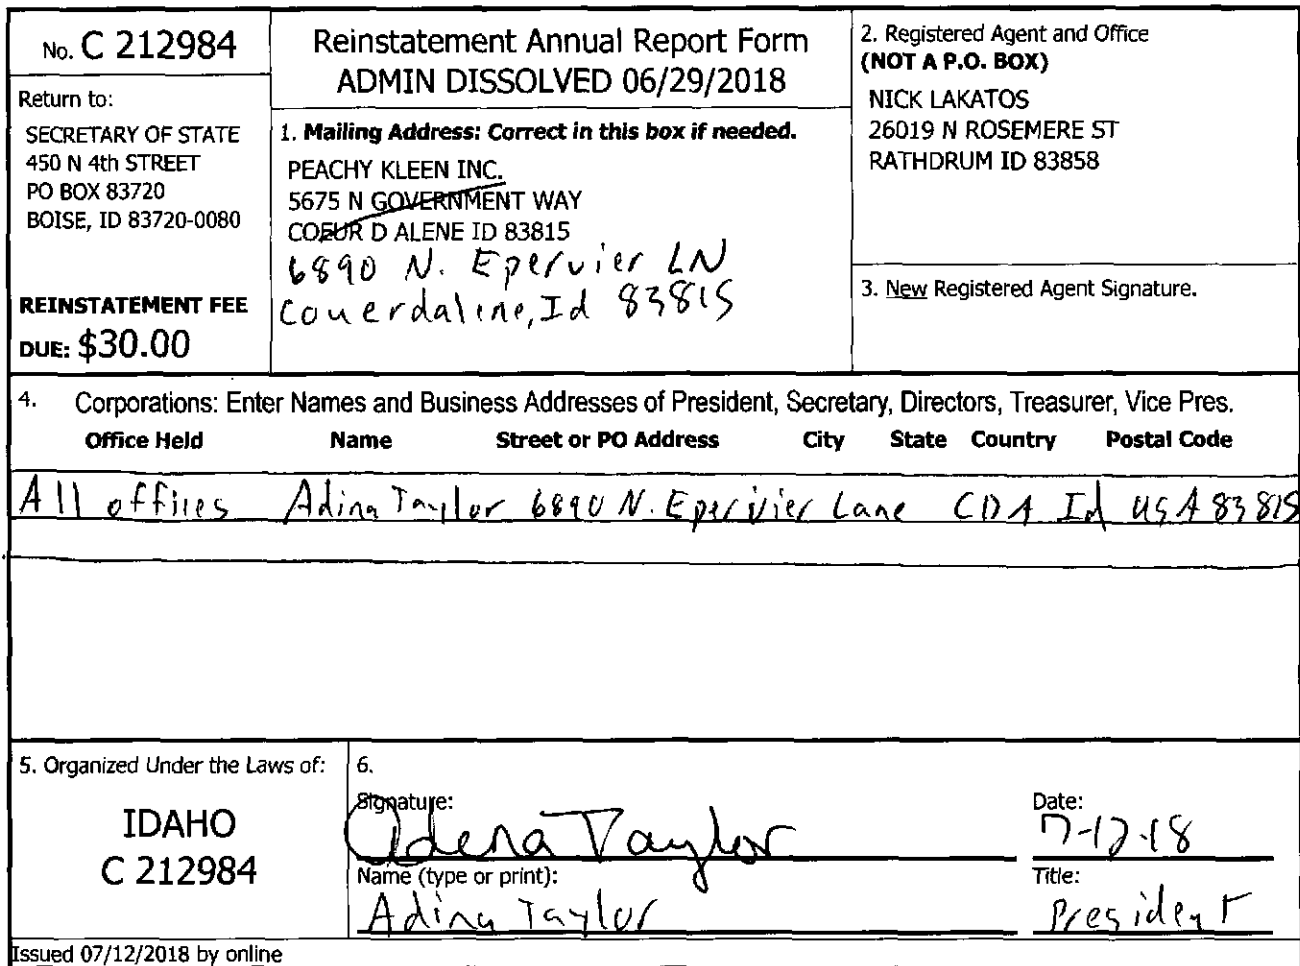 No. C 212984
Return to:
SECRETARY OF STATE
450 N 4th STREET
PO BOX 83720
BOISE, ID 83720-0080
REINSTATEMENT FEE
DUE: $30.00
Reinstatement Annual Report Form
ADMIN DISSOLVED 06/29/2018
1. Mailing Address: Correct in this box if needed.
PEACHY KLEEN INC.
5675 N GOVERNMENT WAY
COEUR D ALENE ID 83815
6890 N. Epervier LN
Couerdaline, Id 83815
2. Registered Agent and Office
(NOT A P.O. BOX)
NICK LAKATOS
26019 N ROSEMERE ST
RATHDRUM ID 83858
3. New Registered Agent Signature.
4. Corporations: Enter Names and Business Addresses of President, Secretary, Directors, Treasurer, Vice Pres.
Office Held Name Street or PO Address City State Country Postal Code
All offires Adina Taylor 6890 N. Epervier Lane CDA Id USA 83815
5. Organized Under the Laws of:
IDAHO
C 212984
6.
Signature:
Adena Taylor
Name (type or print):
Adina Taylor
Date:
7-12-18
Title:
President
Issued 07/12/2018 by online